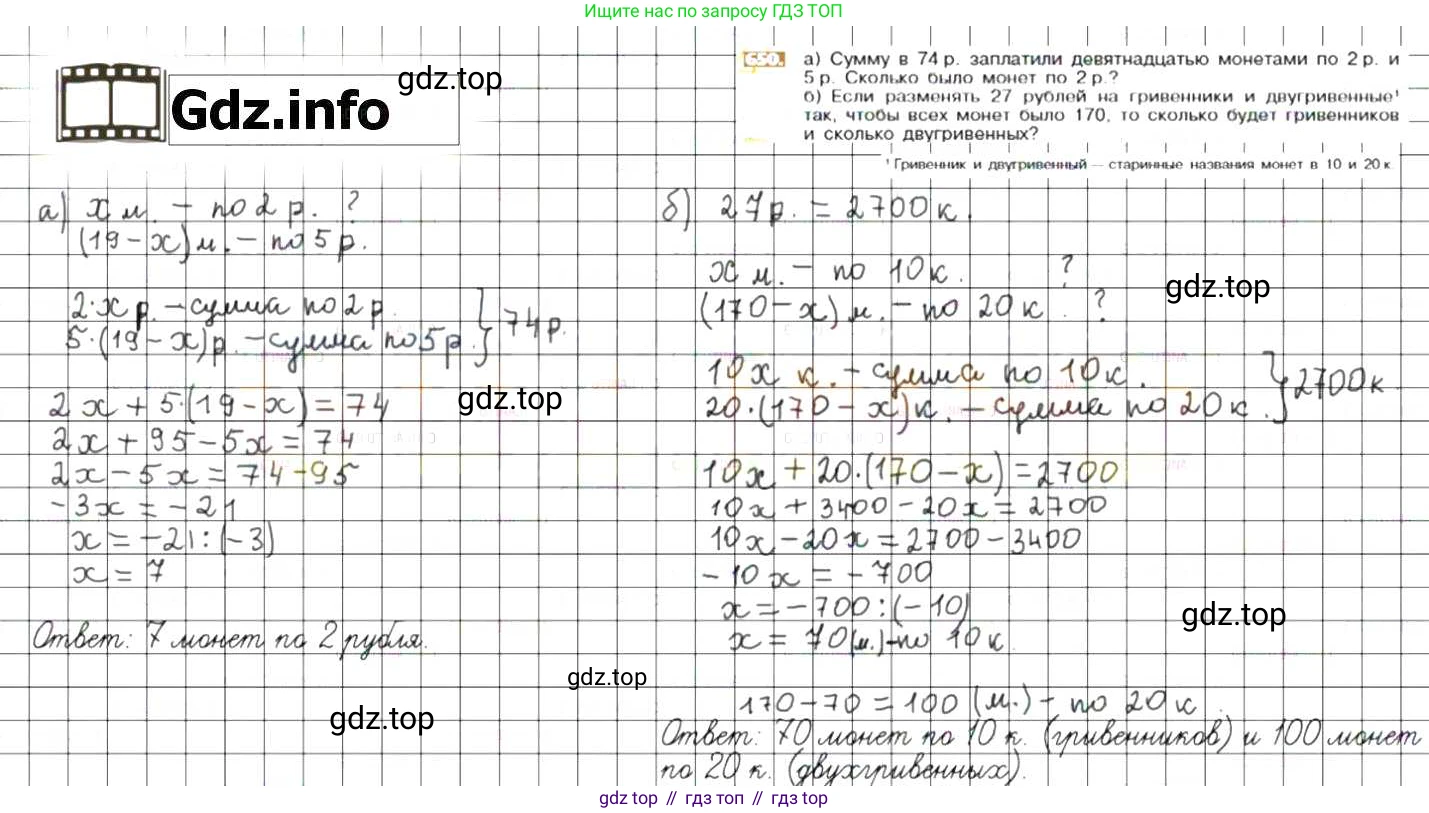 Ищите нас по запросу ГДЗ ТОП
Gdz.info
gdz.top
650. а) Сумму в 74 р. заплатили девятнадцатью монетами по 2 р. и
5 р. Сколько было монет по 2 р.?
б) Если разменять 27 рублей на гривенники и двугривенные¹
так, чтобы всех монет было 170, то сколько будет гривенников
и сколько двугривенных?
¹ Гривенник и двугривенный — старинные названия монет в 10 и 20 к.
а) x м. – по 2 р. ?
(19 – x) м. – по 5 р.
2·x р. – сумма по 2 р.
5·(19 – x) р. – сумма по 5 р.
} 74 р.
2x + 5·(19 – x) = 74
gdz.top
2x + 95 – 5x = 74
2x – 5x = 74 – 95
–3x = –21
x = –21 : (–3)
x = 7
Ответ: 7 монет по 2 рубля.
gdz.top
б) 27 р. = 2700 к.
x м. – по 10 к. ?
gdz.top
(170 – x) м. – по 20 к. ?
10x к. – сумма по 10 к.
20·(170 – x) к. – сумма по 20 к.
} 2700 к
10x + 20·(170 – x) = 2700
10x + 3400 – 20x = 2700
10x – 20x = 2700 – 3400
–10x = –700
x = –700 : (–10)
gdz.top
x = 70 (м.) – по 10 к.
gdz.top
170 – 70 = 100 (м.) – по 20 к.
Ответ: 70 монет по 10 к. (гривенников) и 100 монет
по 20 к. (двухгривенных).
gdz top // гдз топ // gdz.top